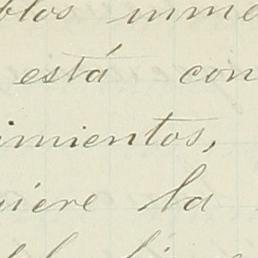 blos inme
está con
imientos,
uiere la